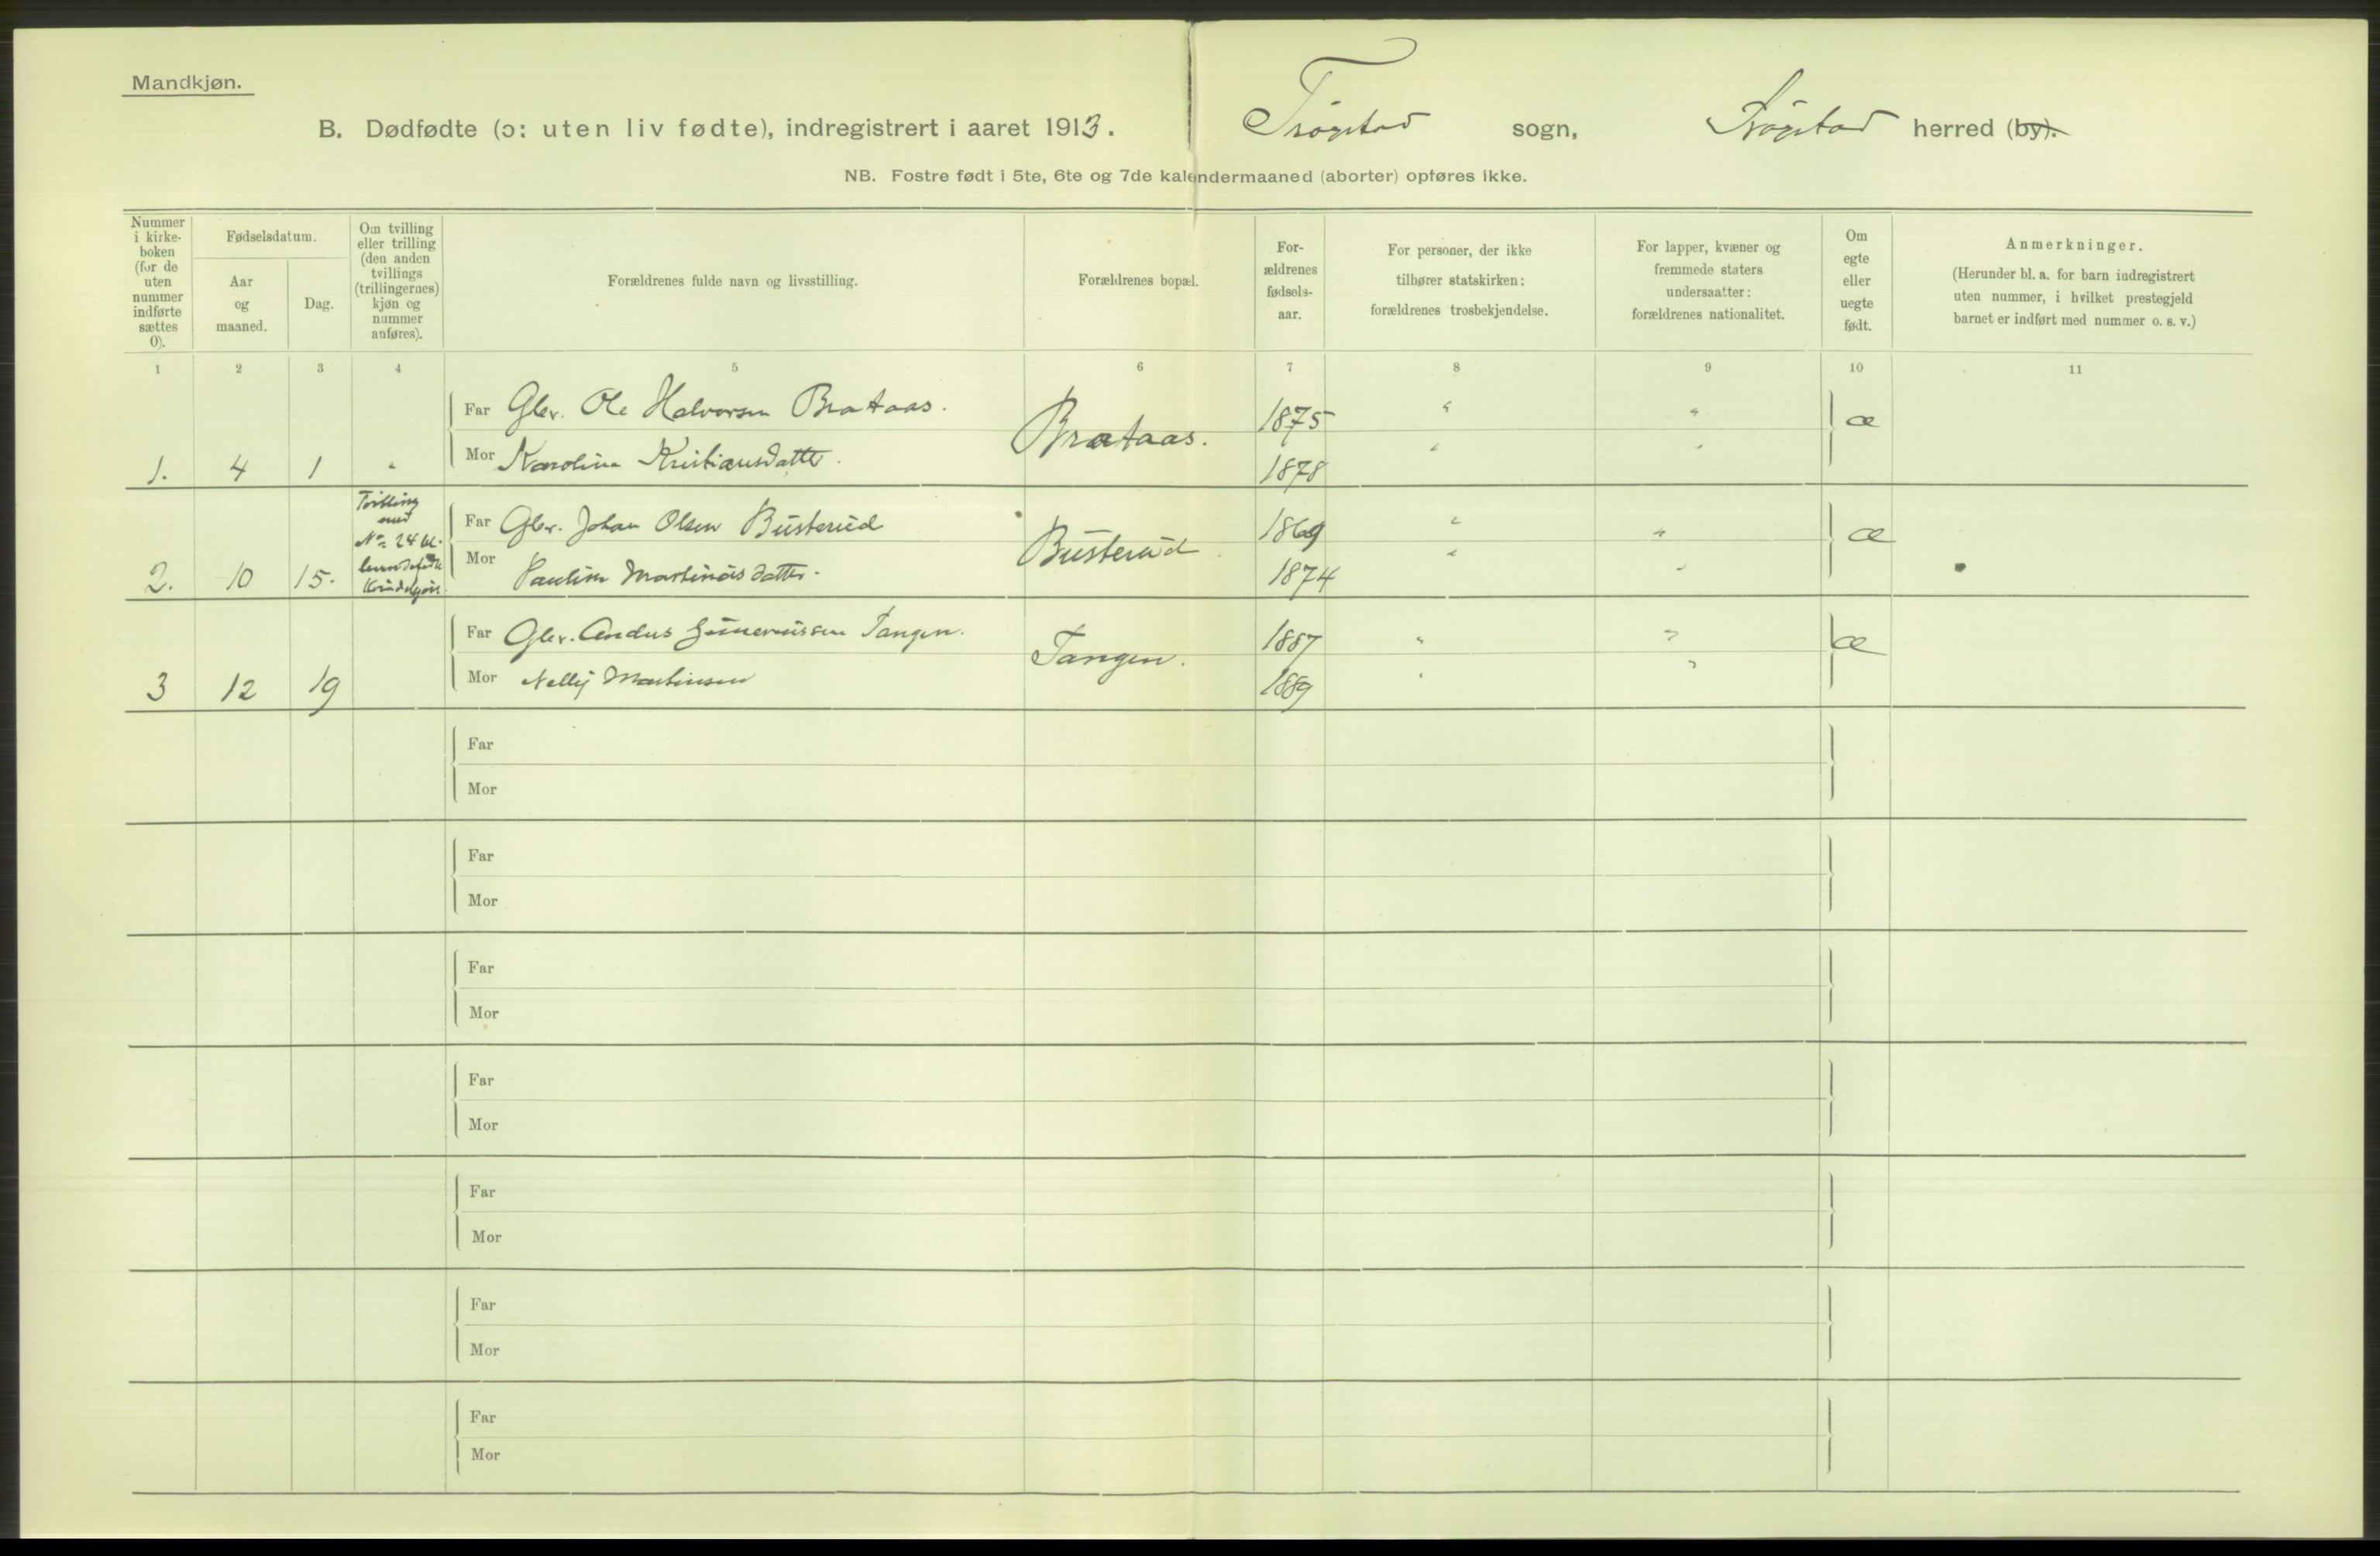 Mandkjøn.
B. Dødfødte (ɔ: uten liv fødte), indregistrert i aaret 1913. Trøgstad sogn, Trøgstad herred (by).
NB. Fostre født i 5te, 6te og 7de kalendermaaned (aborter) opføres ikke.
Nummer
i kirke-
boken
(for de
uten
nummer
indførte
sættes
0).
Fødselsdatum.
Aar
og
maaned.
Dag.
Om tvilling
eller trilling
(den anden
tvillings
(trillingernes)
kjøn og
nummer
anføres).
Forældrenes fulde navn og livsstilling.
Forældrenes bopæl.
For-
ældrenes
fødsels-
aar.
For personer, der ikke
tilhører statskirken:
forældrenes trosbekjendelse.
For lapper, kvæner og
fremmede staters
undersaatter:
forældrenes nationalitet.
Om
egte
eller
uegte
født.
Anmerkninger.
(Herunder bl. a. for barn indregistrert
uten nummer, i hvilket prestegjeld
barnet er indført med nummer o. s. v.)
1 2 3 4 5 6 7 8 9 10 11
Far Gbr. Ole Halvorsen Brataas. 1875 " " æ
1. 4 1 " Mor Karoline Kristiansdatter. Brataas. 1878 " "
Tvilling
med
No 24 bl.
levendefødte
Kvindekjøn.
Far Gbr. Johan Olsen Busterud 1869 " " æ
2. 10 15. Mor Pauline Martinusdatter. Busterud 1874 " "
Far Gbr. Anders Gunerussen Tangen. 1887 " " æ
3 12 19 Mor Nelly Martinsen Tangen. 1889 " "
Far
Mor
Far
Mor
Far
Mor
Far
Mor
Far
Mor
Far
Mor
Far
Mor